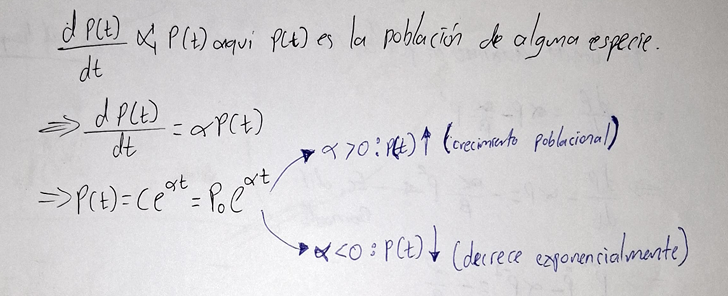 dP(t)/dt ∝ P(t) aqui P(t) es la población de alguna especie.
⇒ dP(t)/dt = αP(t)
α>0 : P(t)↑ (crecimiento poblacional)
⇒ P(t) = Ce^{αt} = P₀e^{αt}
α<0 : P(t)↓ (decrece exponencialmente)